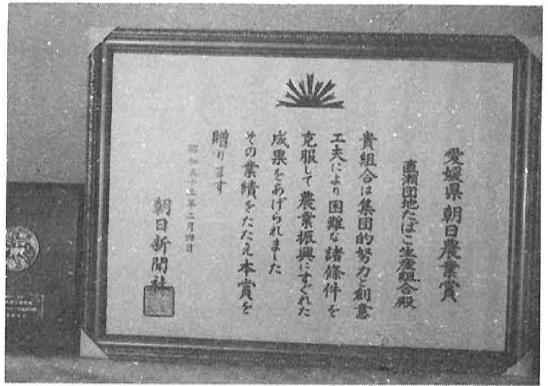 愛媛県朝日農業賞
直瀬団地たばこ生産組合殿
貴組合は集団的努力と創意
工夫により困難な諸條件を
克服して農業振興にすぐれた
成果をあげられました
その業績をたたえ本賞を
贈ります
昭和五十三年二月四日
朝日新聞社